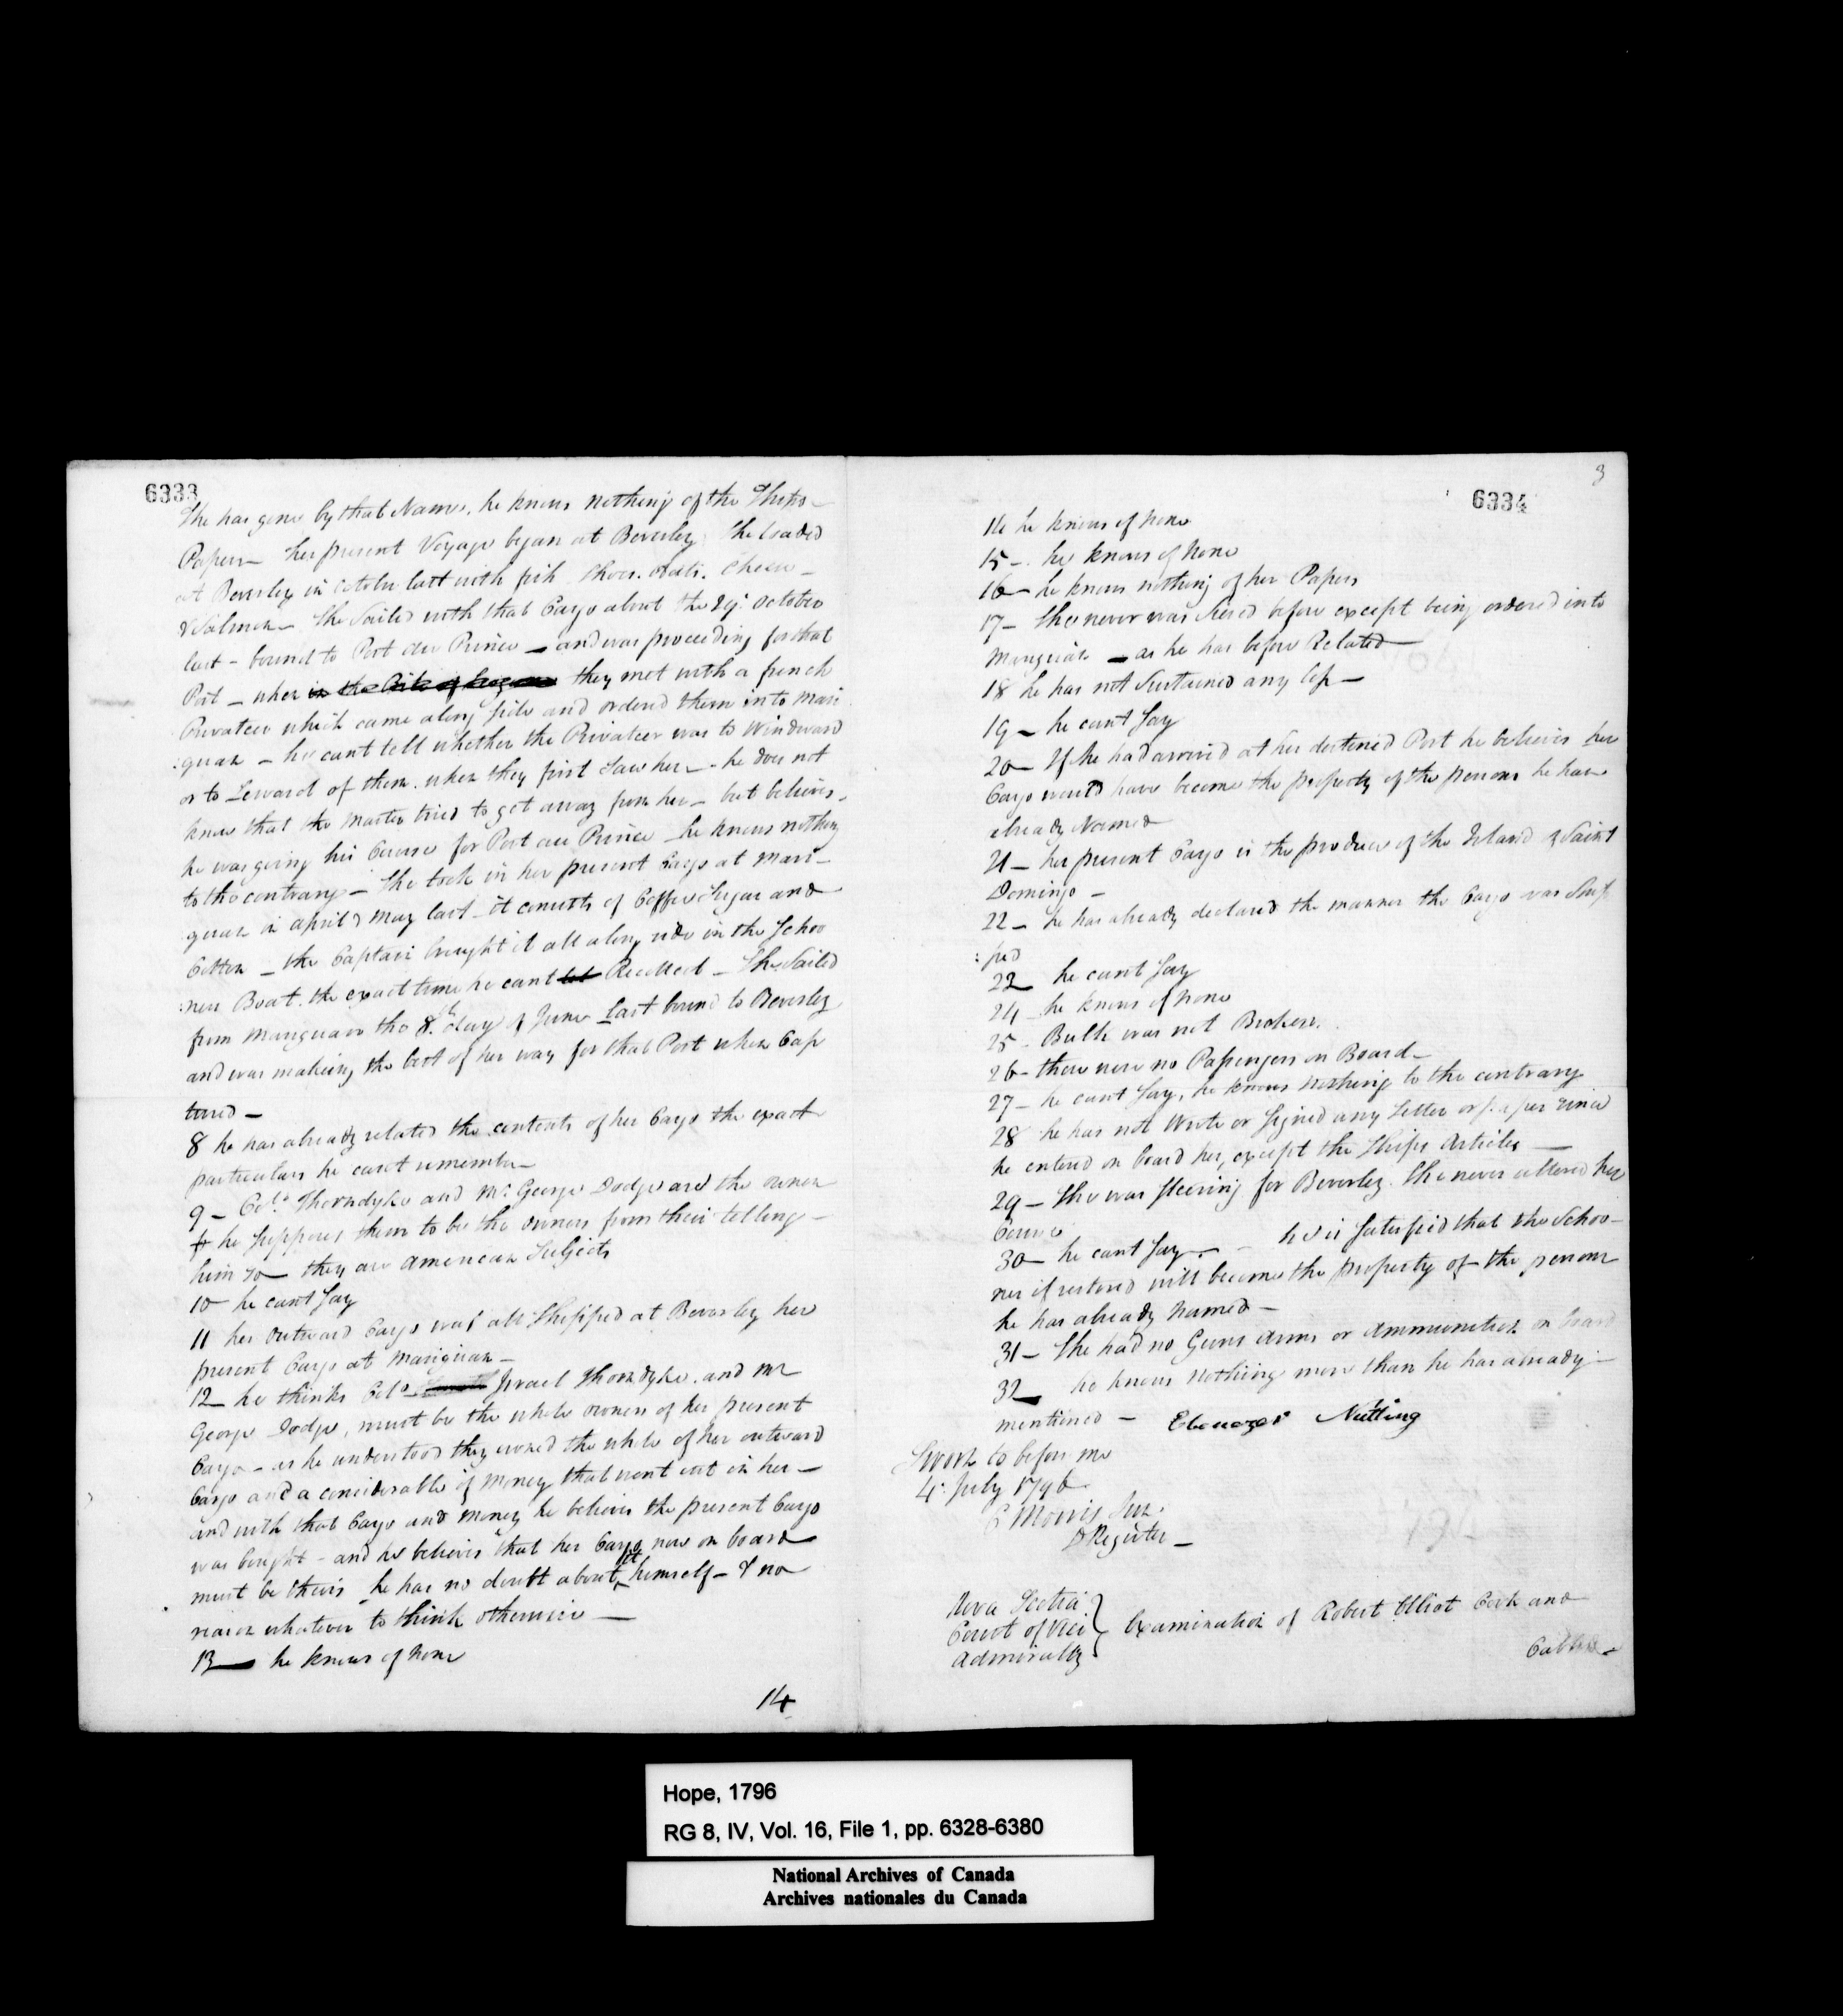 6333
She has gone by that Name. he knows nothing of the Ships
Papers — her present Voyage began at Beverley She loaded
at Beverley in October last with fish Shoes. Hatts. Cheese —
& Salmon — She Sailed with that Cargo about the 29th October
last — bound to Port au Prince — and was proceeding for that
Port — when in the Bite of they met with a french
Privateer which came along side and ordered them into Mari
:guan — he cant tell whether the Privateer was to Windward
or to Leward of them. when they first Saw her — he does not
know that the Master tried to get away from her — but believes
he was giving his Course for Port au Prince — he knows nothing
to the contrary — She took in her present Cargo at Mari—
guan in april & May last — it consists of Coffee Sugar and
Cotton — the Captain brought it all along side in the Schoo
:ners Boat. the exact time he cant tel Recollect — She Sailed
from Mariguano the 8th day of June last bound to Beverley
and was making the best of her way for that Port when Cap
tured —
8 he has already related the contents of her Cargo the exact
particulars he cant remember —
9 — Colo. Thorndyke and Mr. George Dodge are the owners
& he Supposes them to be the owners from their telling —
him so — they are american Subjects
10 he cant Say
11 her outward Cargo was all Shipped at Beverley her
present Cargo at Mariguan —
12 — he thinks Colo. Israel Thorndyke. and Mr
George Dodge, must be the whole owners of her present
Cargo — as he understood they owned the whole of her outward
Cargo and a considerable of Money that went out in her —
and with that Cargo and Money he believes the present Cargo
was bought — and he believes that her Cargo now on board
must be theirs he has no doubt about it himself — & no
reason whatever to think otherwise —
13 — he knows of none
14
3
6334
14 he knows of none
15 — he knows of none
16 — he knows nothing of her Papers
17 — She never was Siezed before except being ordered into
Mariguan — as he has before Related —
18 he has not Sustained any loss —
19 — he cant Say
20 — If he had arrived at her destined Port he believes her
Cargo would have become the property of the persons he has
already Named
21 — her present Cargo is the produce of the Island of Saint
Domingo —
22 — he has already declared the manner the Cargo was Ship
:ped
22 he cant Say
24 — he knows of none
25 — Bulk was not Broken.
26 — there were no Passengers on Board —
27 — he cant Say, he knows nothing to the contrary
28 he has not Wrote or Signed any Letter or paper since
he entered on board her, except the Ships Articles —
29 — She was Steering for Beverley. She never altered her
Course
30 — he cant Say. — he is Satisfied that the Schoo—
ner if restored will become the property of the persons
he has already Named —
31 — She had no Guns Arms or Ammunition on board
32 he knows nothing more than he has already —
mentioned — Ebenezer Nutting
Sworn to before me
4th July 1796
C Morris Jun.
D Register —
Nova Scotia
Court of Vice
Admiralty
Examination of Robert Elliot Cook and
Called —
Hope, 1796
RG 8, IV, Vol. 16, File 1, pp. 6328-6380
National Archives of Canada
Archives nationales du Canada